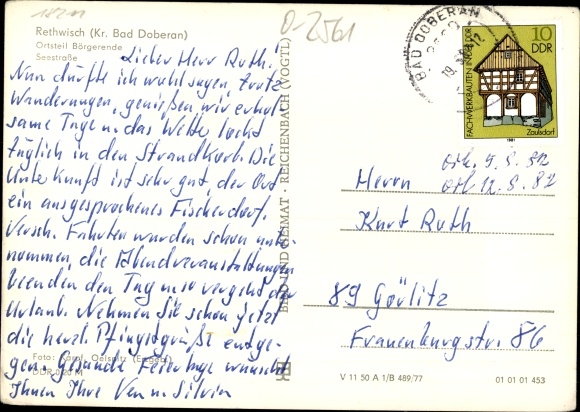 18211
O-2561
Rethwisch (Kr. Bad Doberan)
Ortsteil Börgerende
Seestraße
Lieber Herr Ruth!
Nun dürfte ich wohl sagen, trotz
Wanderungen, genießen wir erhol
same Tage u. das Wetter lockt
täglich in den Strandkorb. Die
Unterkunft ist sehr gut, der Ort
ein ausgesprochenes Fischerdorf.
Versch. Fahrten wurden schon unter
nommen, die Abendveranstaltungen
beenden den Tag u. so vergeht der
Urlaub. Nehmen Sie schon jetzt
die herzl. Pfingstgrüße entge-
gen. Gesunde Feiertage wünscht
Ihnen Ihre u. Silvia
Foto: Karol, Oelsnitz (Erzgeb.)
DDR 0,20 M
BILD UND HEIMAT · REICHENBACH (VOGTL)
BAD DOBERAN
10
DDR
FACHWERKBAUTEN IN DER DDR
Zaulsdorf
1981
Herrn
Kurt Ruth
89 Görlitz
Frauenburgstr. 86
V 11 50 A 1/B 489/77
01 01 01 453